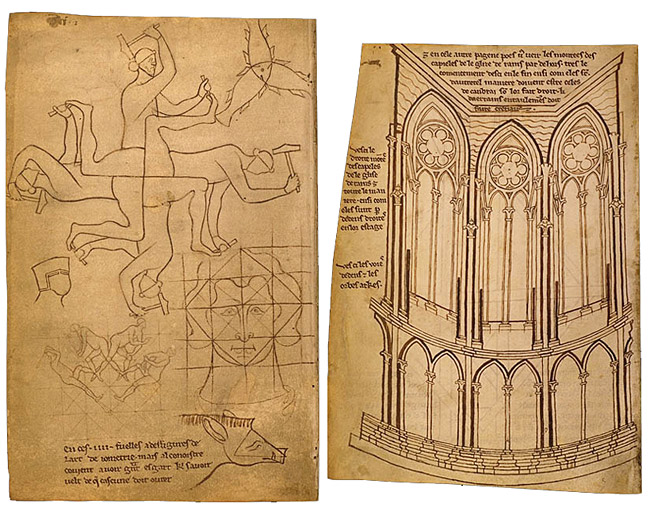 en ces · iiii · fuelles a des figures de
lart de iometrie · mais al conoistre
couient auoir gñt esgart ki sauoir
uelt de q̃ cascune doit ourer
⁊ en cele autre pagene poes ũ ueir les montees des
capieles de le glise de rains par dehors · tres le
comencement desci en le fin ensi com eles sũt
dautretel maniere doiuent estre celes
de canbrai sõ lor fait droit · li
daerrains entaulemẽs doit
faire creteaus ·
vesci le
droite mõte
des capeles
de le glise
de rains ⁊
toute le man
iere · ensi com
eles sunt p
dedens droites
en lor estage
vesci les uoies
dedens · ⁊ les
orbes arkes ·